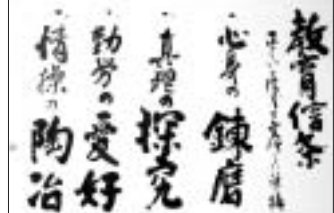 教育信条
・心身の錬磨
・真理の探究
・勤労の愛好
・情操の陶冶